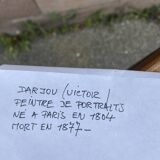 DARJOU (VICTOR)
PEINTRE DE PORTRAITS
NE A PARIS EN 1804
MORT EN 1877_